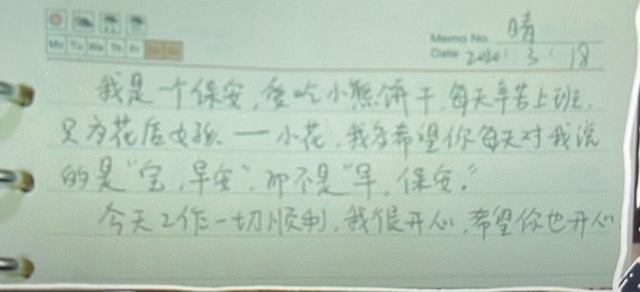 晴
Memo No.
Mo Tu We Th Fr Sa Su
Date 2020 3 18
我是一个保安,爱吃小熊饼干,每天辛苦上班,
只为花店女孩——小花,我多希望你每天对我说
的是“宝,早安”,而不是“早,保安。”
今天工作一切顺利,我很开心,希望你也开心